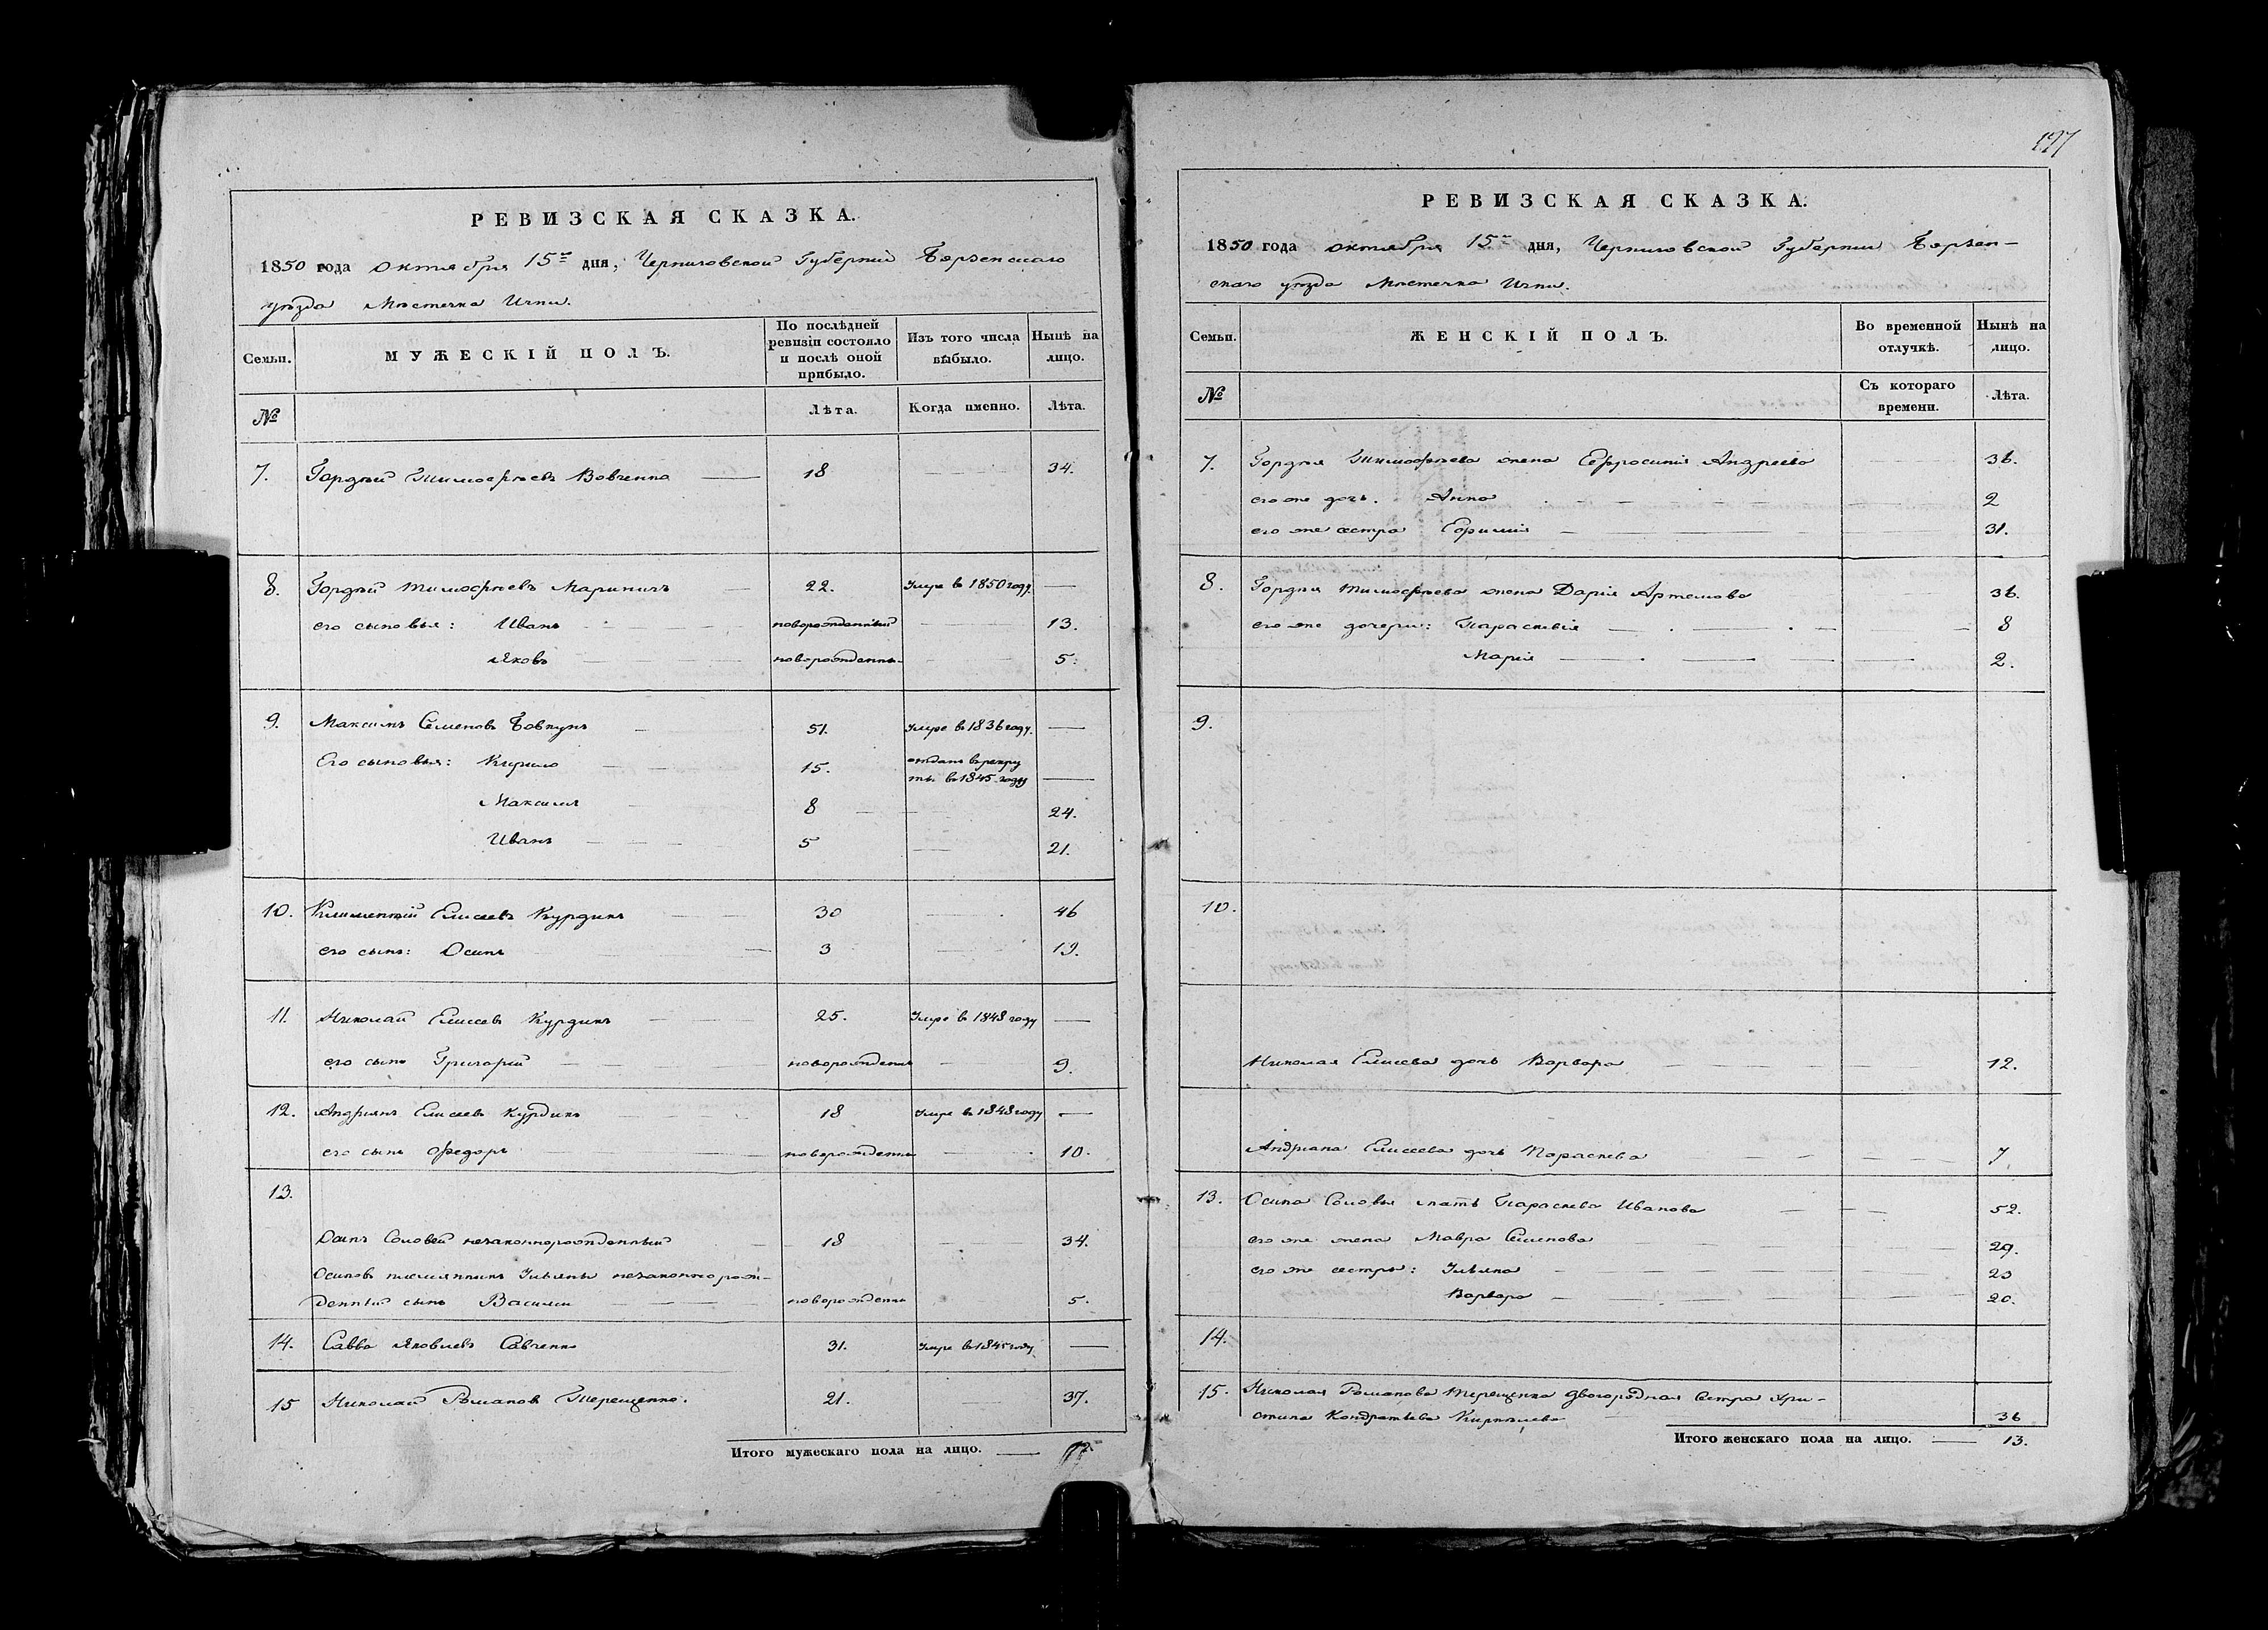 РЕВИЗСКАЯ СКАЗКА.
1850 года октября 15го дня, Черниговской Губерніи Борзенскаго
уѣзда Мѣстечка Ични.
Семьи. МУЖЕСКІЙ ПОЛЪ. По послѣдней ревизіи состояло и послѣ оной прибыло. Изъ того числа выбыло. Нынѣ на лицо.
№ Лѣта. Когда именно. Лѣта.
7. Гордѣй Тимофѣевъ Вовченко 18 34.
8. Гордѣй Тимофѣевъ Мариничъ 22. Умре в 1850 году.
его сыновья: Иванъ новорожденный 13.
Яковъ новорожденны. 5.
9. Максимъ Семеновъ Бовкунъ 51. Умре в 1836 году.
Его сыновья: Кирило 15. отданъ в рекру
ты в 1845 году
Максимъ 8 24.
Иванъ 5 21.
10. Климентій Елисеевъ Курдикъ 30 46
его сынъ: Осипъ 3 19.
11. Николай Елисеевъ Курдикъ 25. Умре в 1848 году
его сынъ Григорій новорожденъ 9.
12. Андріянъ Елисеевъ Курдикъ 18 Умре в 1848 году
его сынъ Федоръ новорожденъ 10.
13.
Осипъ Соловей незаконнорожденный 18 34.
Осиповъ племянникъ Ульяны незаконнорож-
денный сынъ Василій новорожденъ 5.
14. Савва Яковлевъ Савченко 31. Умре в 1845 году
15 Николай Романовъ Терещенко. 21. 37.
Итого мужескаго пола на лицо. 12.
197
РЕВИЗСКАЯ СКАЗКА.
1850 года октября 15го дня, Черниговской Губерніи Борзен-
скаго уѣзда Мѣстечка Ични.
Семьи. ЖЕНСКІЙ ПОЛЪ. Во временной отлучкѣ. Нынѣ на лицо.
№ Съ котораго времени. Лѣта.
7. Гордѣя Тимофѣева жена Ефросинія Андреева 36.
его же дочь. Анна 2
его же сестра Ефимія 31.
8. Гордѣя Тимофѣева жена Дарія Артемова 36.
его же дочери: Параскевія 8
Марія 2.
9.
10.
Николая Елисеева дочь Варвара 12.
Андріана Елисеева дочь Параскева 7
13. Осипа Соловья мать Параскева Иванова 52.
его же жена Мавра Семенова 29.
его же сестры: Ульяна 23
Варвара 20.
14.
15. Николая Романова Терещенка двоюродная сестра Хри-
стина Кондратьева 36
Итого женскаго пола на лицо. 13.